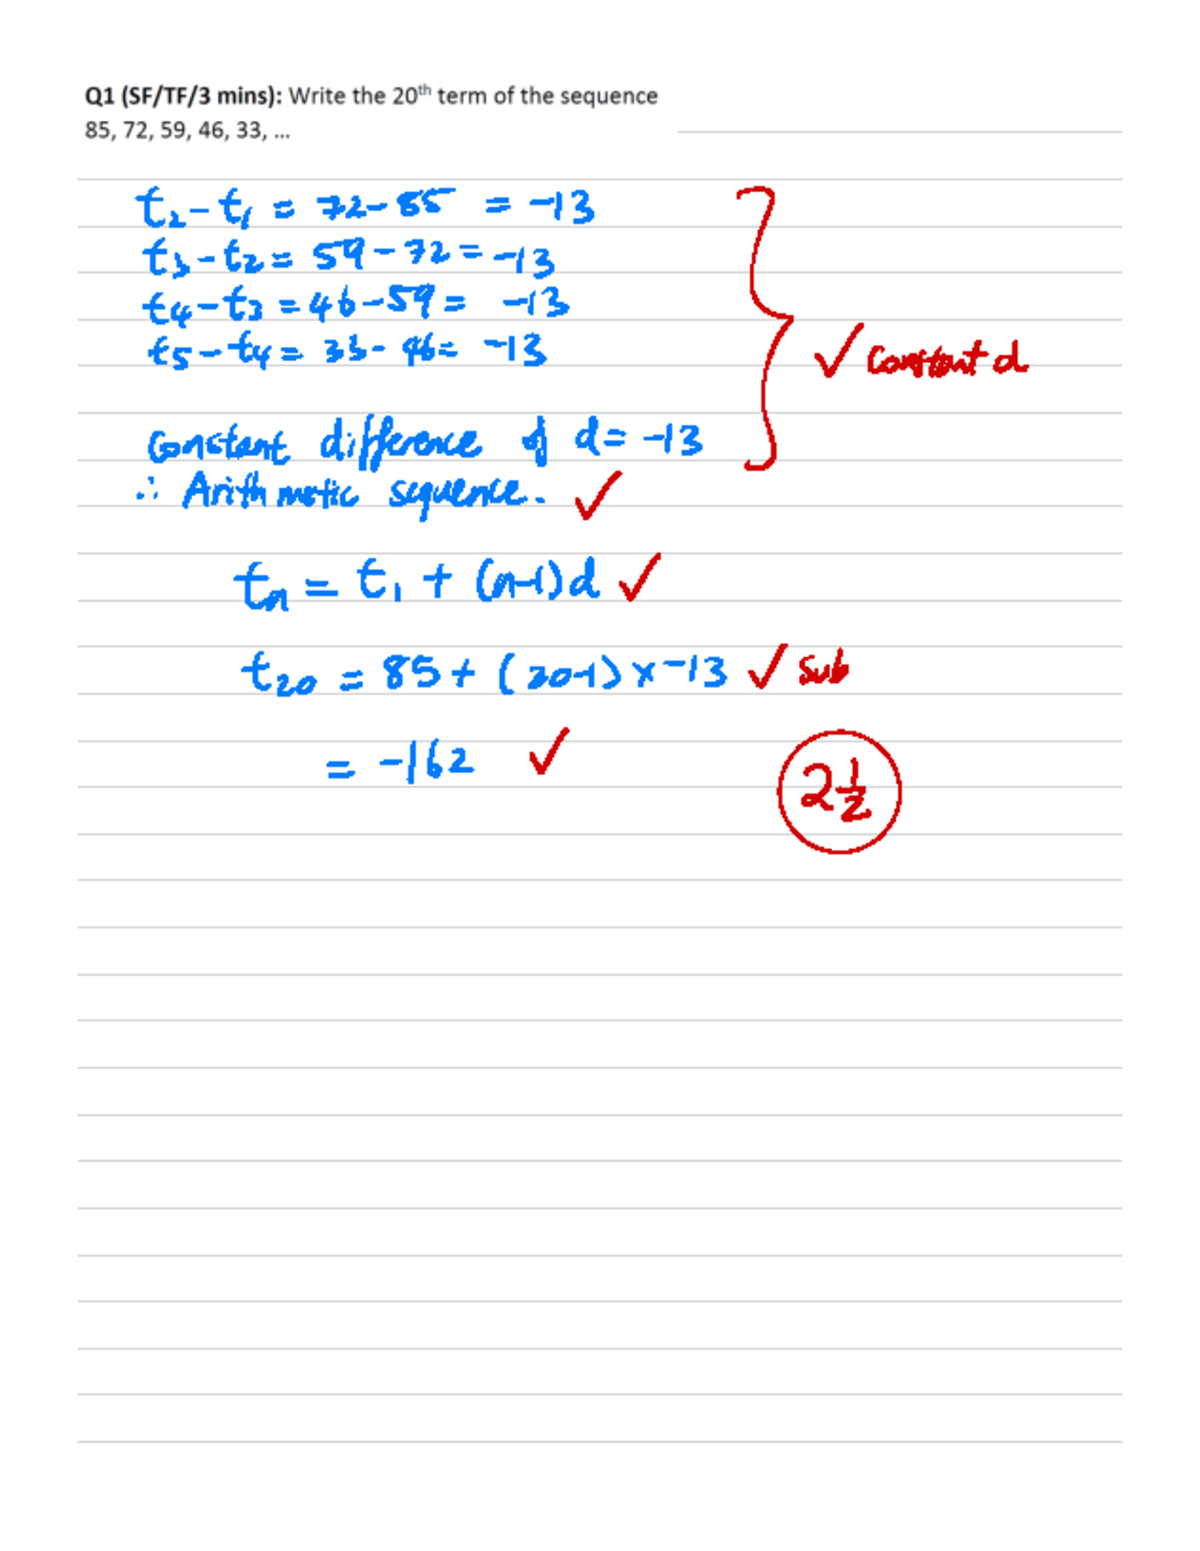 Q1 (SF/TF/3 mins): Write the 20th term of the sequence
85, 72, 59, 46, 33, ...
t₂ - t₁ = 72 - 85 = -13
t₃ - t₂ = 59 - 72 = -13
t₄ - t₃ = 46 - 59 = -13
t₅ - t₄ = 33 - 46 = -13
✓ Constant d
Constant difference of d = -13
∴ Arithmetic sequence. ✓
tₙ = t₁ + (n-1)d ✓
t₂₀ = 85 + (20-1) × -13 ✓ Sub
= -162 ✓
2½